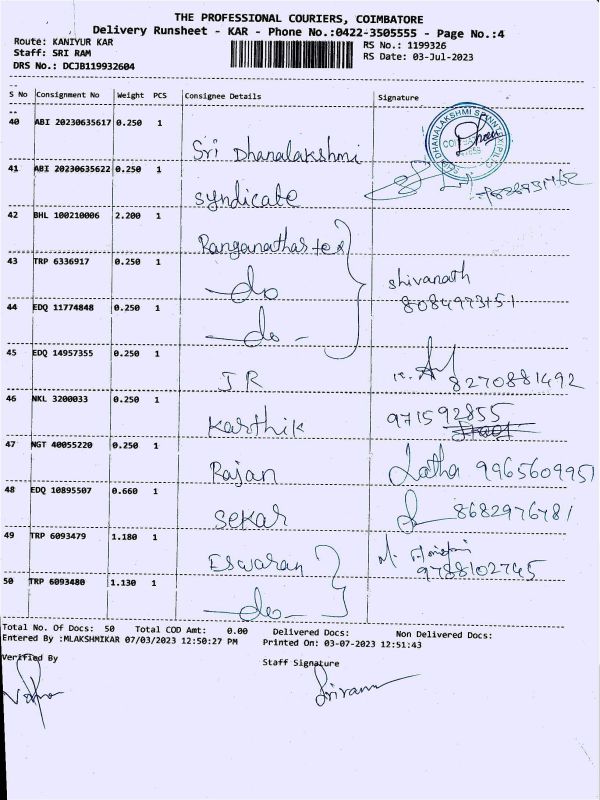 THE PROFESSIONAL COURIERS, COIMBATORE
Delivery Runsheet - KAR - Phone No.:0422-3505555 - Page No.:4
Route: KANIYUR KAR
RS No.: 1199326
Staff: SRI RAM
RS Date: 03-Jul-2023
DRS No.: DCJB119932604
S No Consignment No Weight PCS Consignee Details Signature
40 ABI 20230635617 0.250 1 Sri Dhanalakshmi
41 ABI 20230635622 0.250 1 Syndicate
42 BHL 100210006 2.200 1 Ranganathas tex
43 TRP 6336917 0.250 1 do shivanath
44 EDQ 11774848 0.250 1 do
45 EDQ 14957355 0.250 1 JR 8270881492
46 NKL 3200033 0.250 1 Karthik 971592855
47 NGT 40055220 0.250 1 Rajan Latha 9965609951
48 EDQ 10895507 0.660 1 Sekar 8682976781
49 TRP 6093479 1.180 1 Eswaran M. 9788102745
50 TRP 6093480 1.130 1 do
Total No. Of Docs: 50 Total COD Amt: 0.00 Delivered Docs: Non Delivered Docs:
Entered By :MLAKSHMIKAR 07/03/2023 12:50:27 PM Printed On: 03-07-2023 12:51:43
Verified By Staff Signature
Sriram